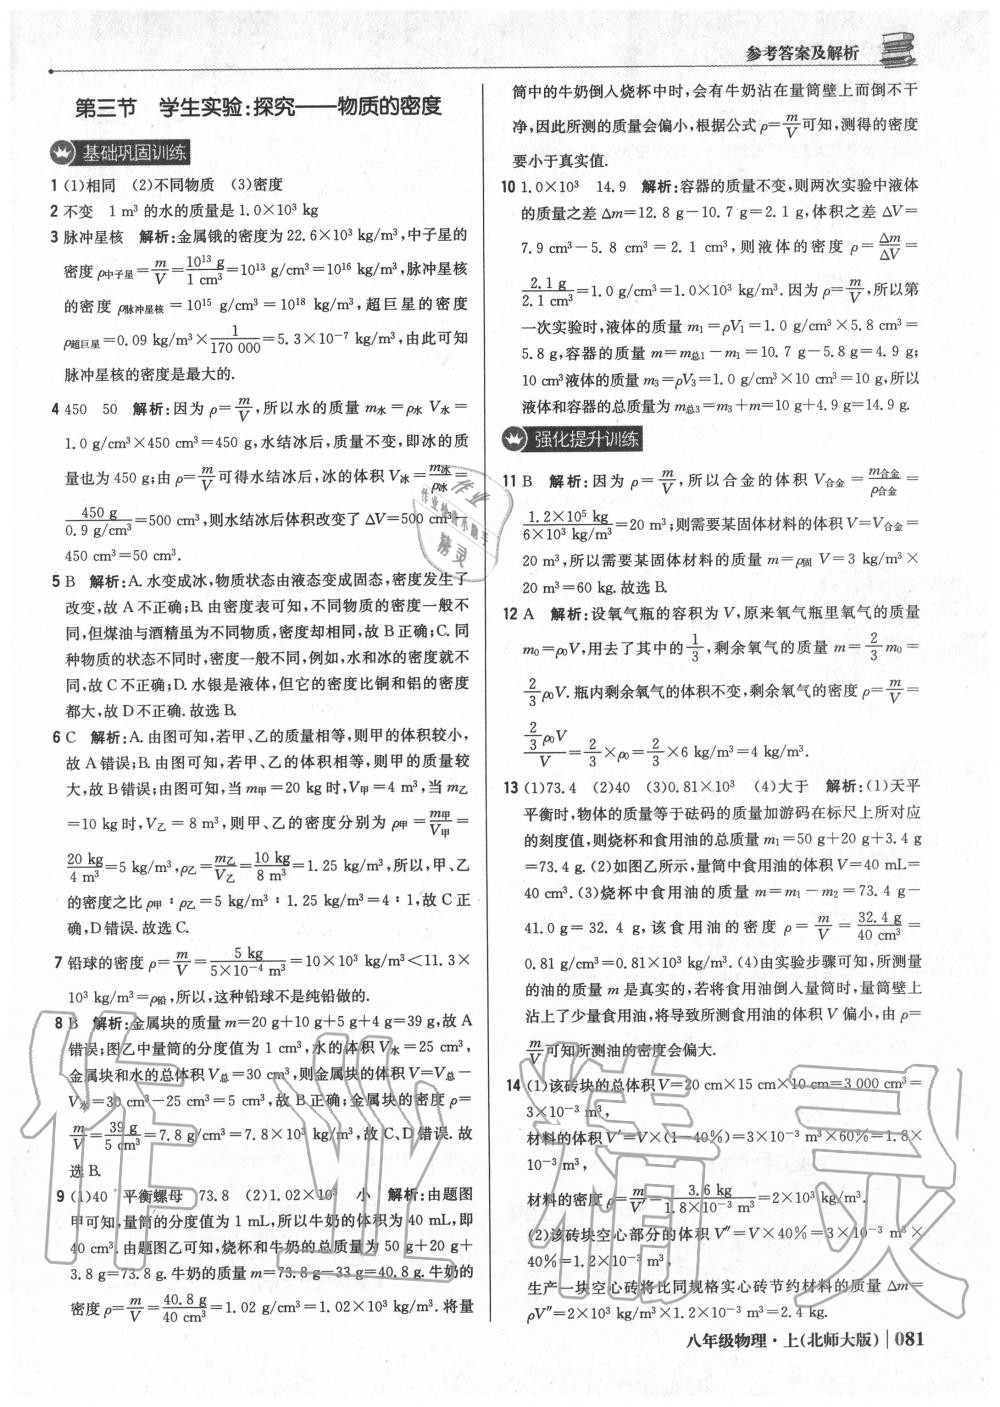 参考答案及解析
第三节 学生实验:探究——物质的密度
基础巩固训练
1 (1)相同 (2)不同物质 (3)密度
2 不变 1 m³ 的水的质量是 1.0×10³ kg
3 脉冲星核 解析:金属锇的密度为 22.6×10³ kg/m³,中子星的
密度 ρ中子星=m/V=10¹³ g/1 cm³=10¹³ g/cm³=10¹⁶ kg/m³,脉冲星核
的密度 ρ脉冲星核=10¹⁵ g/cm³=10¹⁸ kg/m³,超巨星的密度
ρ超巨星=0.09 kg/m³×1/170 000=5.3×10⁻⁷ kg/m³,由此可知
脉冲星核的密度是最大的.
4 450 50 解析:因为 ρ=m/V,所以水的质量 m水=ρ水 V水=
1.0 g/cm³×450 cm³=450 g;水结冰后,质量不变,即冰的质
量也为 450 g;由 ρ=m/V可得水结冰后,冰的体积 V冰=m冰/ρ冰=
450 g/0.9 g/cm³=500 cm³,则水结冰后体积改变了 ΔV=500 cm³−
450 cm³=50 cm³.
5 B 解析:A. 水变成冰,物质状态由液态变成固态,密度发生了
改变,故 A 不正确;B. 由密度表可知,不同物质的密度一般不
同,但煤油与酒精虽为不同物质,密度却相同,故 B 正确;C. 同
种物质的状态不同时,密度一般不同,例如,水和冰的密度就不
同,故 C 不正确;D. 水银是液体,但它的密度比铜和铝的密度
都大,故 D 不正确. 故选 B.
6 C 解析:A. 由图可知,若甲、乙的质量相等,则甲的体积较小,
故 A 错误;B. 由图可知,若甲、乙的体积相等,则甲的质量较
大,故 B 错误;由图可知,当 m甲=20 kg 时,V甲=4 m³,当 m乙
=10 kg 时,V乙=8 m³,则甲、乙的密度分别为 ρ甲=m甲/V甲=
20 kg/4 m³=5 kg/m³,ρ乙=m乙/V乙=10 kg/8 m³=1.25 kg/m³,所以,甲、乙
的密度之比 ρ甲:ρ乙=5 kg/m³:1.25 kg/m³=4:1,故 C 正
确,D 错误. 故选 C.
7 铅球的密度 ρ=m/V=5 kg/5×10⁻⁴ m³=10×10³ kg/m³<11.3×
10³ kg/m³=ρ铅,所以,这种铅球不是纯铅做的.
8 B 解析:金属块的质量 m=20 g+10 g+5 g+4 g=39 g,故 A
错误;图乙中量筒的分度值为 1 cm³,水的体积 V水=25 cm³,
金属块和水的总体积 V总=30 cm³,则金属块的体积 V=V总−
V水=30 cm³−25 cm³=5 cm³,故 B 正确;金属块的密度 ρ=
m/V=39 g/5 cm³=7.8 g/cm³=7.8×10³ kg/m³,故 C、D 错误. 故
选 B.
9 (1)40 平衡螺母 73.8 (2)1.02×10³ 小 解析:由题图
甲可知,量筒的分度值为 1 mL,所以牛奶的体积为 40 mL,即
40 cm³. 由题图乙可知,烧杯和牛奶的总质量为 50 g+20 g+
3.8 g=73.8 g. 牛奶的质量 m=73.8 g−33 g=40.8 g. 牛奶的
密度 ρ=m/V=40.8 g/40 cm³=1.02 g/cm³=1.02×10³ kg/m³. 将量
筒中的牛奶倒入烧杯中时,会有牛奶沾在量筒壁上而倒不干
净,因此所测的质量会偏小,根据公式 ρ=m/V可知,测得的密度
要小于真实值.
10 1.0×10³ 14.9 解析:容器的质量不变,则两次实验中液体
的质量之差 Δm=12.8 g−10.7 g=2.1 g,体积之差 ΔV=
7.9 cm³−5.8 cm³=2.1 cm³,则液体的密度 ρ=Δm/ΔV=
2.1 g/2.1 cm³=1.0 g/cm³=1.0×10³ kg/m³. 因为 ρ=m/V,所以第
一次实验时,液体的质量 m₁=ρV₁=1.0 g/cm³×5.8 cm³=
5.8 g,容器的质量 m=m总1−m₁=10.7 g−5.8 g=4.9 g;
10 cm³液体的质量 m₃=ρV₃=1.0 g/cm³×10 cm³=10 g,所以
液体和容器的总质量为 m总3=m₃+m=10 g+4.9 g=14.9 g.
强化提升训练
11 B 解析:因为 ρ=m/V,所以合金的体积 V合金=m合金/ρ合金=
1.2×10⁵ kg/6×10³ kg/m³=20 m³;则需要某固体材料的体积 V=V合金=
20 m³,所以需要某固体材料的质量 m=ρ固 V=3 kg/m³×
20 m³=60 kg. 故选 B.
12 A 解析:设氧气瓶的容积为 V,原来氧气瓶里氧气的质量
m₀=ρ₀V,用去了其中的1/3,剩余氧气的质量 m=2/3 m₀=
2/3 ρ₀V. 瓶内剩余氧气的体积不变,剩余氧气的密度 ρ=m/V=
2/3 ρ₀V/V=2/3×ρ₀=2/3×6 kg/m³=4 kg/m³.
13 (1)73.4 (2)40 (3)0.81×10³ (4)大于 解析:(1)天平
平衡时,物体的质量等于砝码的质量加游码在标尺上所对应
的刻度值,则烧杯和食用油的总质量 m₁=50 g+20 g+3.4 g
=73.4 g. (2)如图乙所示,量筒中食用油的体积 V=40 mL=
40 cm³. (3)烧杯中食用油的质量 m=m₁−m₂=73.4 g−
41.0 g=32.4 g,该食用油的密度 ρ=m/V=32.4 g/40 cm³=
0.81 g/cm³=0.81×10³ kg/m³. (4)由实验步骤可知,所测量
的油的质量 m 是真实的,若将食用油倒入量筒时,量筒壁上
沾上了少量食用油,将导致所测食用油的体积 V 偏小,由 ρ=
m/V可知所测油的密度会偏大.
14 (1)该砖块的总体积 V=20 cm×15 cm×10 cm=3 000 cm³=
3×10⁻³ m³,
材料的体积 V′=V×(1−40%)=3×10⁻³ m³×60%=1.8×
10⁻³ m³,
材料的密度 ρ=m/V′=3.6 kg/1.8×10⁻³ m³=2×10³ kg/m³.
(2)该砖块空心部分的体积 V″=V×40%=3×10⁻³ m³×
40%=1.2×10⁻³ m³,
生产一块空心砖将比同规格实心砖节约材料的质量 Δm=
ρV″=2×10³ kg/m³×1.2×10⁻³ m³=2.4 kg.
八年级物理·上(北师大版) | 081
作业精灵